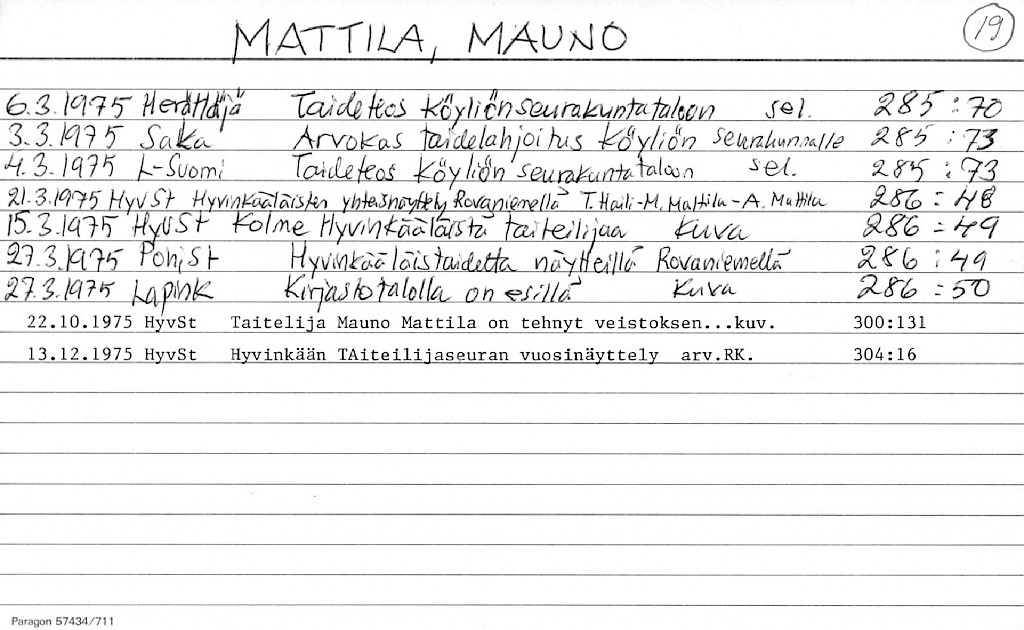 MATTILA, MAUNO 19
6.3.1975 Herättäjä Taideteos Köyliön seurakuntataloon sel. 285:70
3.3.1975 SaKa Arvokas taidelahjoitus Köyliön seurakunnalle 285:73
4.3.1975 L-Suomi Taideteos Köyliön seurakuntataloon sel. 285:73
21.3.1975 HyvSt Hyvinkääläisten yhteisnäyttely Rovaniemellä T. Haili-M. Mattila-A. Mattila 286:48
15.3.1975 HyvSt Kolme Hyvinkääläistä taiteilijaa Kuva 286:49
27.3.1975 PohjSt Hyvinkääläistaidetta näytteillä Rovaniemellä 286:49
27.3.1975 LapinK Kirjastotalolla on esillä Kuva 286:50
22.10.1975 HyvSt Taitelija Mauno Mattila on tehnyt veistoksen...kuv. 300:131
13.12.1975 HyvSt Hyvinkään TAiteilijaseuran vuosinäyttely arv.RK. 304:16
Paragon 57434/711